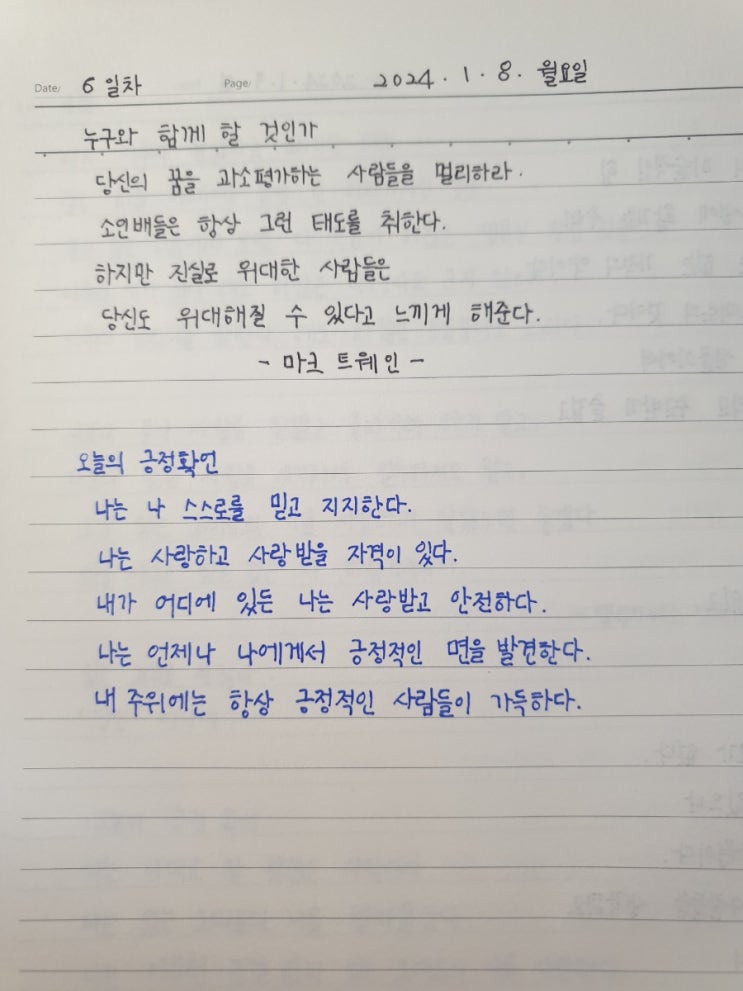 Date/ 6일차 Page/ 2024. 1. 8. 월요일
누구와 함께 할 것인가
당신의 꿈을 과소평가하는 사람들을 멀리하라.
소인배들은 항상 그런 태도를 취한다.
하지만 진실로 위대한 사람들은
당신도 위대해질 수 있다고 느끼게 해준다.
- 마크 트웨인 -
오늘의 긍정확언
나는 나 스스로를 믿고 지지한다.
나는 사랑하고 사랑받을 자격이 있다.
내가 어디에 있든 나는 사랑받고 안전하다.
나는 언제나 나에게서 긍정적인 면을 발견한다.
내 주위에는 항상 긍정적인 사람들이 가득하다.